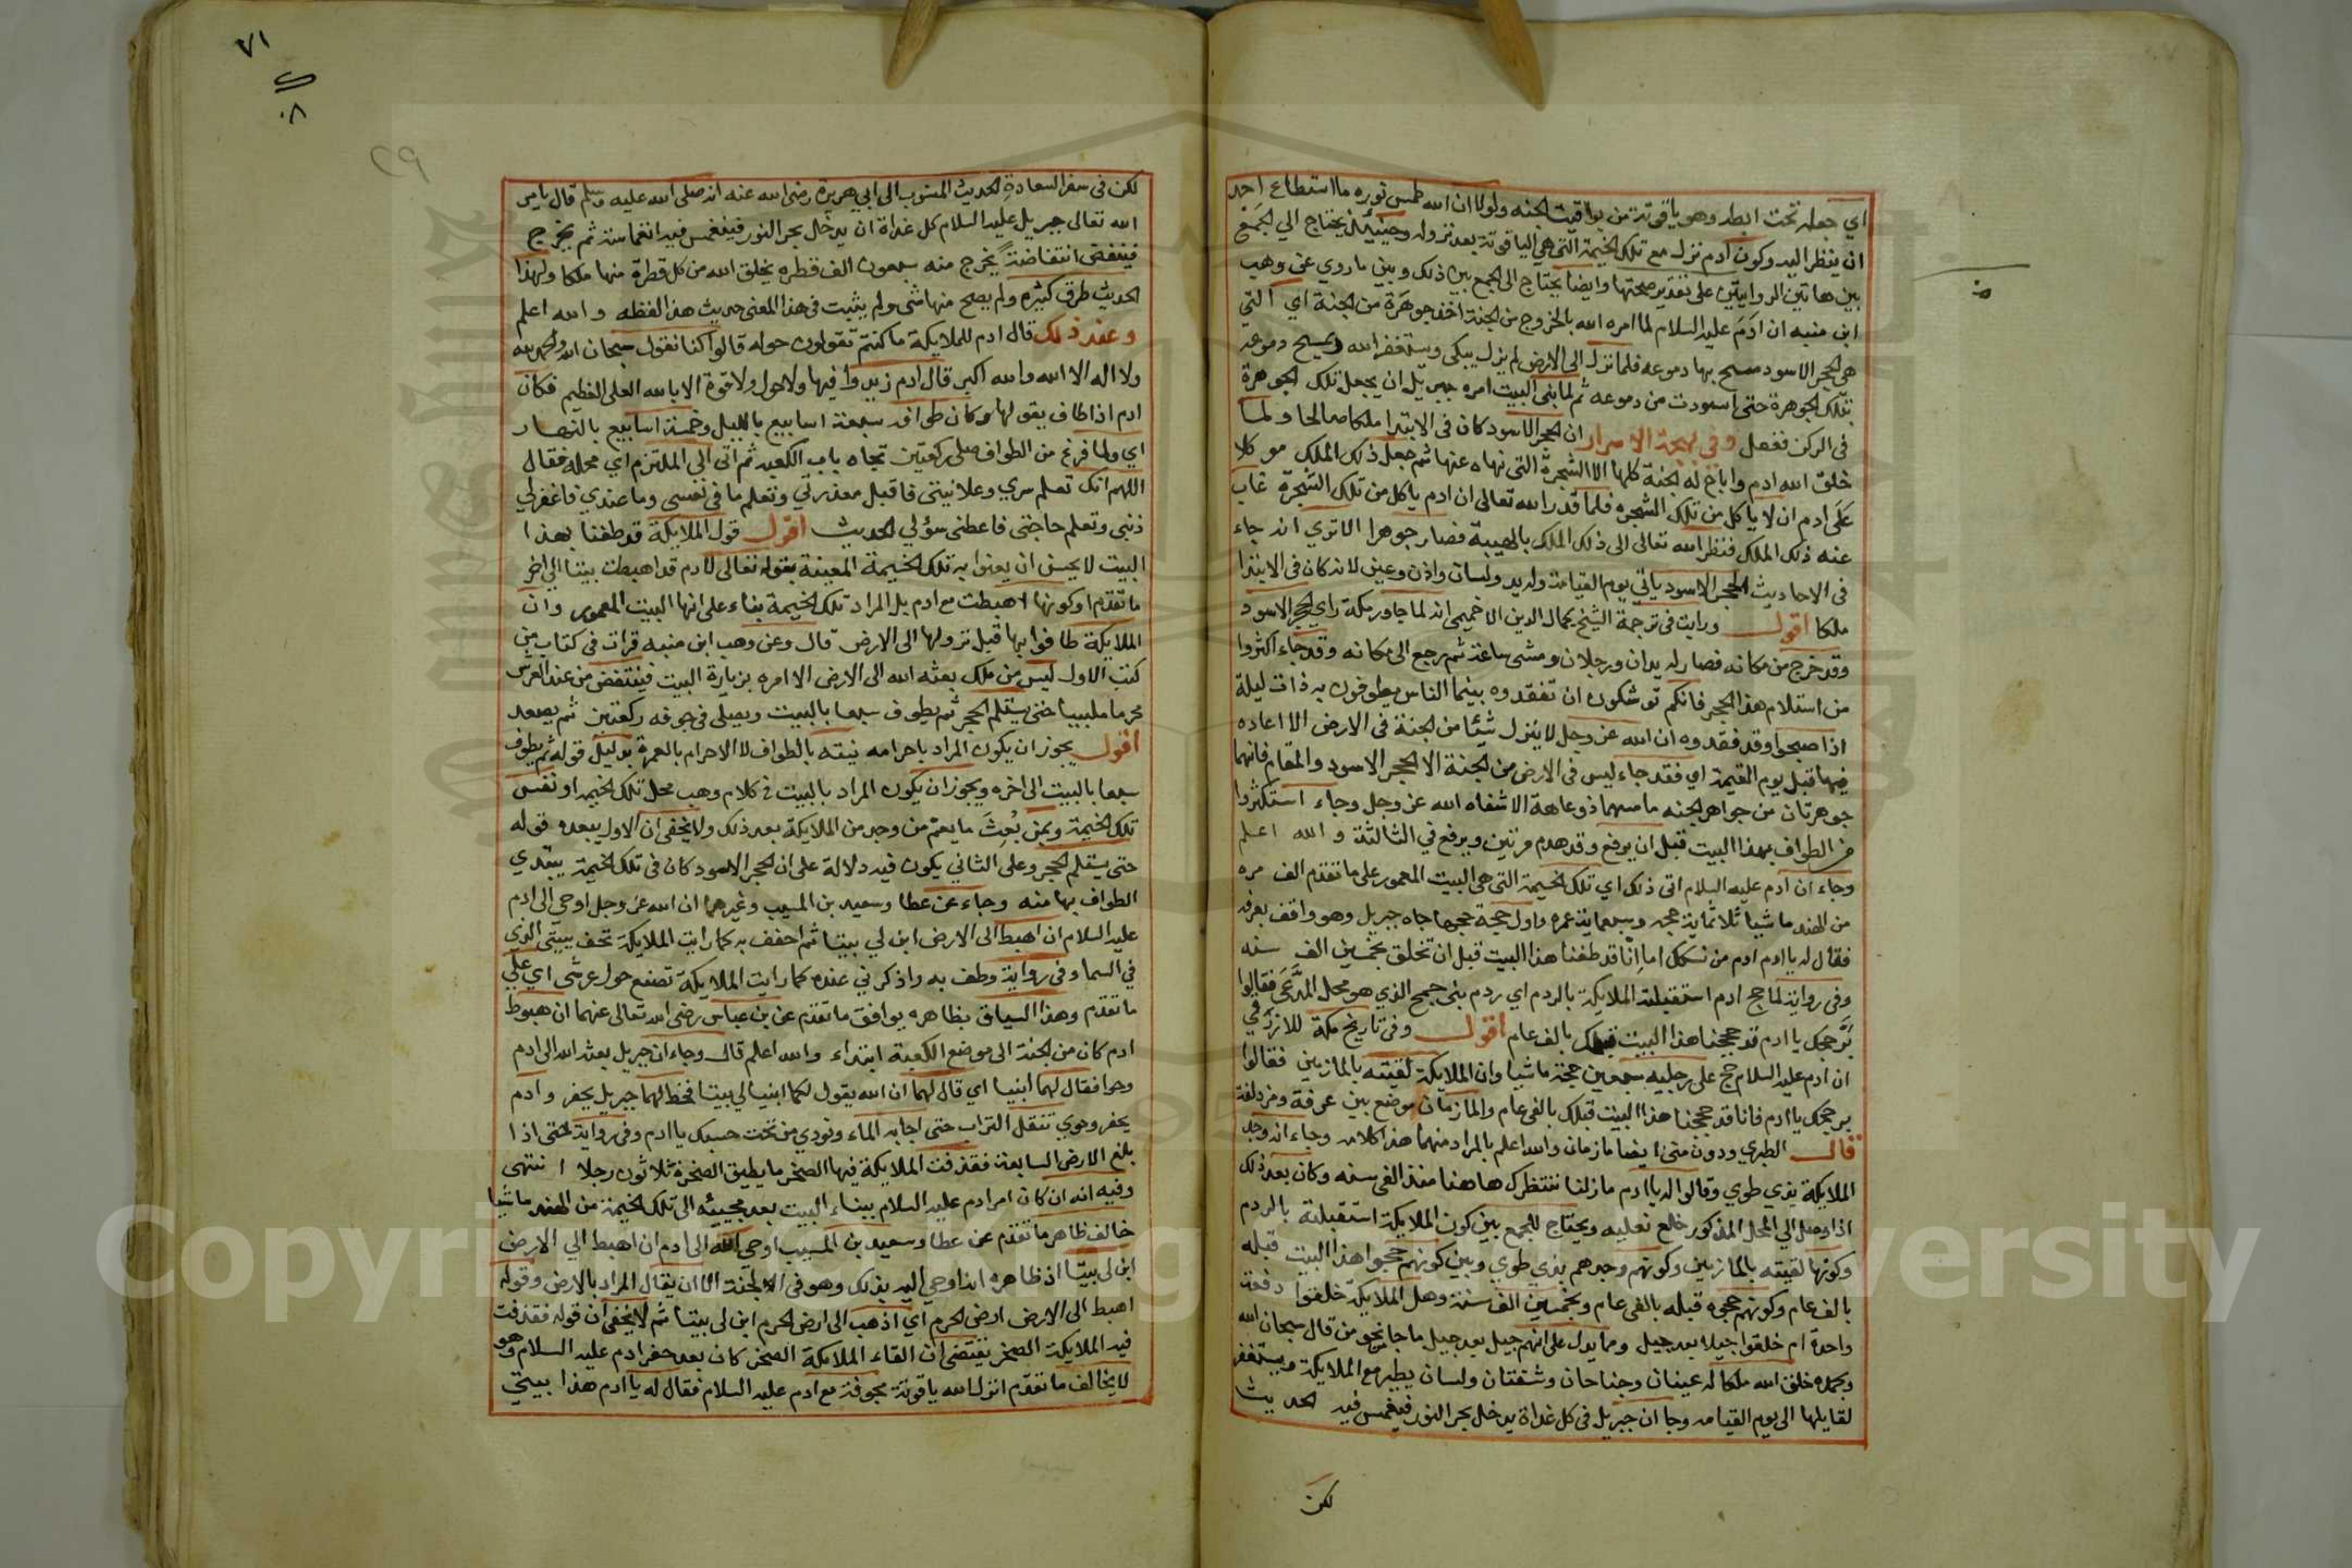 اي جعله تحت ابطه وهو ياقوتة من يواقيت الجنه ولولا ان الله طمس نوره ما استطاع احد
ان ينظر اليه وكون آدم نزل مع تلك الخيمة التي هي الياقوتة بعد نزوله وحينئذ يحتاج الي الجمع
بين هاتين الروايتين على تقدير صحتها وايضا يحتاج الى الجمع بين ذلك وبين ما روي عن وهب
ابن منبه ان ادم عليه السلام لما امره الله بالخروج من الجنة اخذ جوهرة من الجنة اي التي
هي الحجر الاسود مسح بها دموعه فلما نزل الى الارض لم يزل يبكي ويستغفر الله ويمسح دموعه
بتلك الجوهرة حتى اسودت من دموعه ثم لما بنى البيت امره جبريل ان يجعل تلك الجوهرة
في الركن ففعل وفي بهجة الاسرار ان الحجر الاسود كان في الابتدا ملكا صالحا ولما
خلق الله ادم واباح له الجنة كلها الا الشجرة التي نهاه عنها ثم جعل ذلك الملك موكلا
على ادم ان لا ياكل من تلك الشجره فلما قدر الله تعالى ان ادم ياكل من تلك الشجرة غاب
عنه ذلك الملك فنظر الله تعالى الى ذلك الملك بالهيبة فصار جوهرا الا تري انه جاء
في الاحاديث الحجر الاسود ياتي يوم القيامة وله يد ولسان واذن وعين لانه كان في الابتدا
ملكا اقول ورايت في ترجمة الشيخ كمال الدين الاخميمي انه لما جاور بمكة راي الحجر الاسود
وقد خرج من مكانه فصار له يدان ورجلان ومشى ساعة ثم رجع الى مكانه وقد جاء اكثروا
من استلام هذا الحجر فانكم توشكون ان تفقدوه بينما الناس يطوفون به ذات ليلة
اذا صبحوا وقد فقدوه ان الله عز وجل لا ينزل شيئا من الجنة في الارض الا اعاده
فيها قبل يوم القيمة اي فقد جاء ليس في الارض من الجنة الا الحجر الاسود والمقام فانهما
جوهرتان من جواهر الجنه ما مسهما ذو عاهة الا شفاه الله عز وجل وجاء استكثروا
من الطواف بهذا البيت قبل ان يرفع وقد هدم مرتين ويرفع في الثالثة والله اعلم
وجاء ان آدم عليه السلام اتى ذلك اي تلك الخيمة التي هي البيت المعمور على ما تقدم الف مره
من الهند ماشيا ثلاثماية حجه وسبعماية عمره واول حجة حجها جاه جبريل وهو واقف بعرفه
فقال له يا ادم ادم من نسكك اما انا قد طفنا هذا البيت قبل ان تخلق بخمسين الف سنه
وفي رواية لما حج ادم استقبلته الملايكة بالردم اي ردم بني جمح الذي هو محل المدعى فقالوا
بر حجك يا ادم قد حججنا هذا البيت قبلك بالف عام اقول وفي تاريخ مكة للازرقي
ان ادم عليه السلام حج على رجليه سبعين حجة ماشيا وان الملايكة لقيته بالمازمين فقالوا
بر حجك يا ادم فانا قد حججنا هذا البيت قبلك بالفي عام والمازمان موضع بين عرفة ومزدلفة
قال الطبري ودون منى ايضا مازمان والله اعلم بالمراد منهما هذا كلامه وجاء انه وجد
الملايكة بذي طوي وقالوا له يا ادم ما زلنا ننتظرك هاهنا منذ الفي سنه وكان بعد ذلك
اذا وصل الي المحل المذكور خلع نعليه ويحتاج للجمع بين كون الملايكة استقبلته بالردم
وكونها لقيته بالمازمين وكونهم وجدهم بذي طوي وبين كونهم حجوا هذا البيت قبله
بالف عام وكونهم حجوه قبله بالفي عام وبخمسين الف سنة وهل الملايكة خلقوا دفعة
واحدة ام خلقوا جيلا بعد جيل ومما يدل على انهم جيل بعد جيل ما جا نحو من قال سبحان الله
وبحمده خلق الله ملكا له عينان وجناحان وشفتان ولسان يطير مع الملايكة ويستغفر
لقايلها الى يوم القيامه وجا ان جبريل في كل غداة يدخل بحر النور فينغمس فيه الحديث
لكن
٧١
٢٩
لكن في سفر السعادة الحديث المنسوب الى ابي هريرة رضي الله عنه انه صلى الله عليه وسلم قال يامر
الله تعالى جبريل عليه السلام كل غداة ان يدخل بحر النور فينغمس فيه انغماسة ثم يخرج
فينتفض انتفاضة يخرج منه سبعون الف قطره يخلق الله من كل قطرة منها ملكا ولهذا
الحديث طرق كثيره ولم يصح منها شي ولم يثبت في هذا المعنى حديث هذا لفظه والله اعلم
وعند ذلك قال ادم للملايكة ما كنتم تقولون حوله قالوا كنا نقول سبحان الله والحمد لله
ولا اله الا الله والله اكبر قال ادم زيدوا فيها ولا حول ولا قوة الا بالله العلى العظيم فكان
ادم اذا طاف يقولها وكان طوافه سبعة اسابيع بالليل وخمسة اسابيع بالنهار
اي ولما فرغ من الطواف صلى ركعتين تجاه باب الكعبه ثم اتى الي الملتزم اي محله فقال
اللهم انك تعلم سري وعلانيتي فاقبل معذرتي وتعلم ما في نفسي وما عندي فاغفر لي
ذنبي وتعلم حاجتي فاعطني سؤلي الحديث اقول قول الملايكة قد طفنا بهذا
البيت لا يحسن ان يعنوا به تلك الخيمة المعينة بقوله تعالى لادم قد اهبطت بيتا الي اخر
ما تقدم او كونها اهبطت مع ادم بل المراد تلك الخيمة بناء على انها البيت المعمور وان
الملايكة طافوا بها قبل نزولها الى الارض قال وعن وهب ابن منبه قرات في كتاب من
كتب الاول ليس من ملك بعثه الله الى الارض الا امره بزيارة البيت فينتفض من عند العرش
محرما ملبيا حتى يستلم الحجر ثم يطوف سبعا بالبيت ويصلى في جوفه ركعتين ثم يصعد
اقول يجوز ان يكون المراد باحرامه نيته بالطواف لا الاحرام بالعمرة بدليل قوله ثم يطوف
سبعا بالبيت الى اخره ويجوز ان يكون المراد بالبيت في كلام وهب محل تلك الخيمه او نفس
تلك الخيمة وبمن بُعِثَ ما يعم من وجد من الملايكة بعد ذلك ولا يخفى ان الاول يبعده قوله
حتى يستلم الحجر وعلى الثاني يكون فيه دلالة على ان الحجر الاسود كان في تلك الخيمة يبتدي
الطواف بها منه وجاء عن عطا وسعيد بن المسيب وغيرهما ان الله عز وجل اوحى الى ادم
عليه السلام ان اهبط الى الارض ابن لي بيتا ثم احفف به كما رايت الملايكة تحف ببيتي الذي
في السما وفي رواية وطف به واذكرني عنده كما رايت الملايكة تصنع حول عرشي اي على
ما تقدم وهذا السياق بظاهره يوافق ما تقدم عن بن عباس رضي الله تعالى عنهما ان هبوط
ادم كان من الجنة الى موضع الكعبة ابتداء والله اعلم قال وجاء ان جبريل بعثه الله الى ادم
وحوا فقال لهما ابنيا اي قال لهما ان الله يقول لكما ابنيا لي بيتا فخط لهما جبريل يحفر وادم
يحفر وحوي تنقل التراب حتى اجابه الماء ونودي من تحت حسبك يا ادم وفي رواية حتى اذا
بلغ الارض السابعة فقذفت الملايكة فيها الصخر ما يطيق الصخرة ثلاثون رجلا انتهى
وفيه انه ان كان امر ادم عليه السلام ببناء البيت بعد مجيئه الى تلك الخيمة من الهند ماشيا
خالف ظاهر ما تقدم عن عطا وسعيد بن المسيب اوحى الله الى ادم ان اهبط الي الارض
ابن لي بيتا اذ ظاهره انه اوحي اليه بذلك وهو في الجنة الا ان يقال المراد بالارض وقوله
اهبط الى الارض ارض الحرم اي اذهب الى ارض الحرم ابن لي بيتا ثم لا يخفى ان قوله فقذفت
فيه الملايكة الصخر يقتضى ان القاء الملايكة الصخر كان بعد حفر ادم عليه السلام وهو
لا يخالف ما تقدم انزل الله ياقوتة مجوفة مع ادم عليه السلام فقال له يا ادم هذا بيتي
Copyright © King Saud University